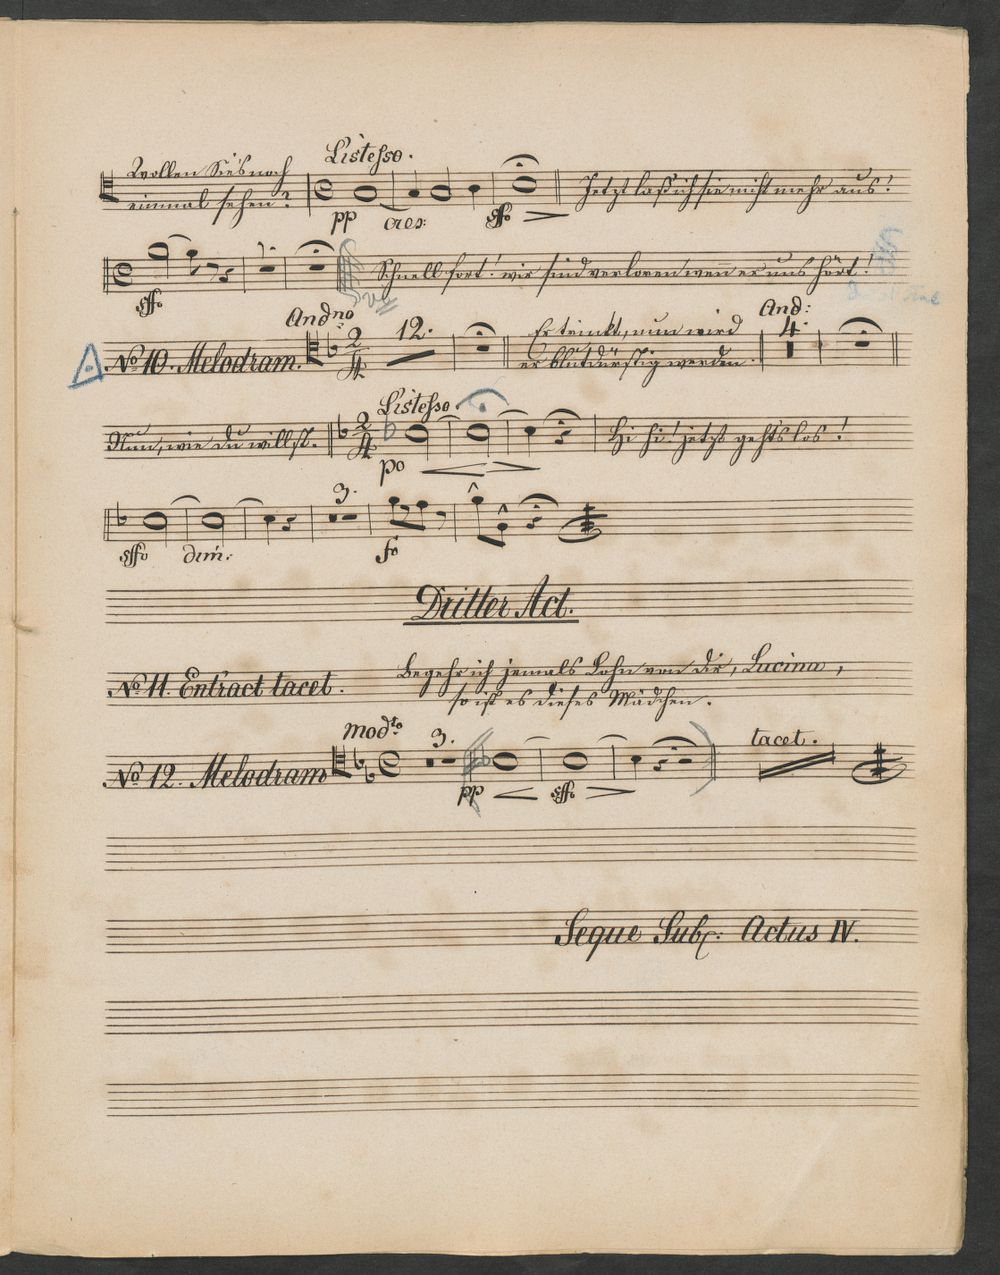 Wollen Sie's noch
einmal sehen?
L'istesso.
pp cres: sffo
Jetzt laß ich sie nicht mehr aus!
sffo
Schnell fort! wir sind verloren wenn er uns hört!
No 10. Melodram.
Andno
2/4
12.
Er trinkt, nun wird
er blutdürstig werden.
And:
4.
Nun, wie du willst.
L'istesso
2/4
po
Hi hi! jetzt geht's los!
sffo dim: 3. fo
Dritter Act.
No 11. Entract tacet.
Begehr ich jemals Lohn von dir, Lucina,
so ist es dieses Mädchen.
No 12. Melodram
modto
3.
pp sffo
tacet.
Seque Sub: Actus IV.